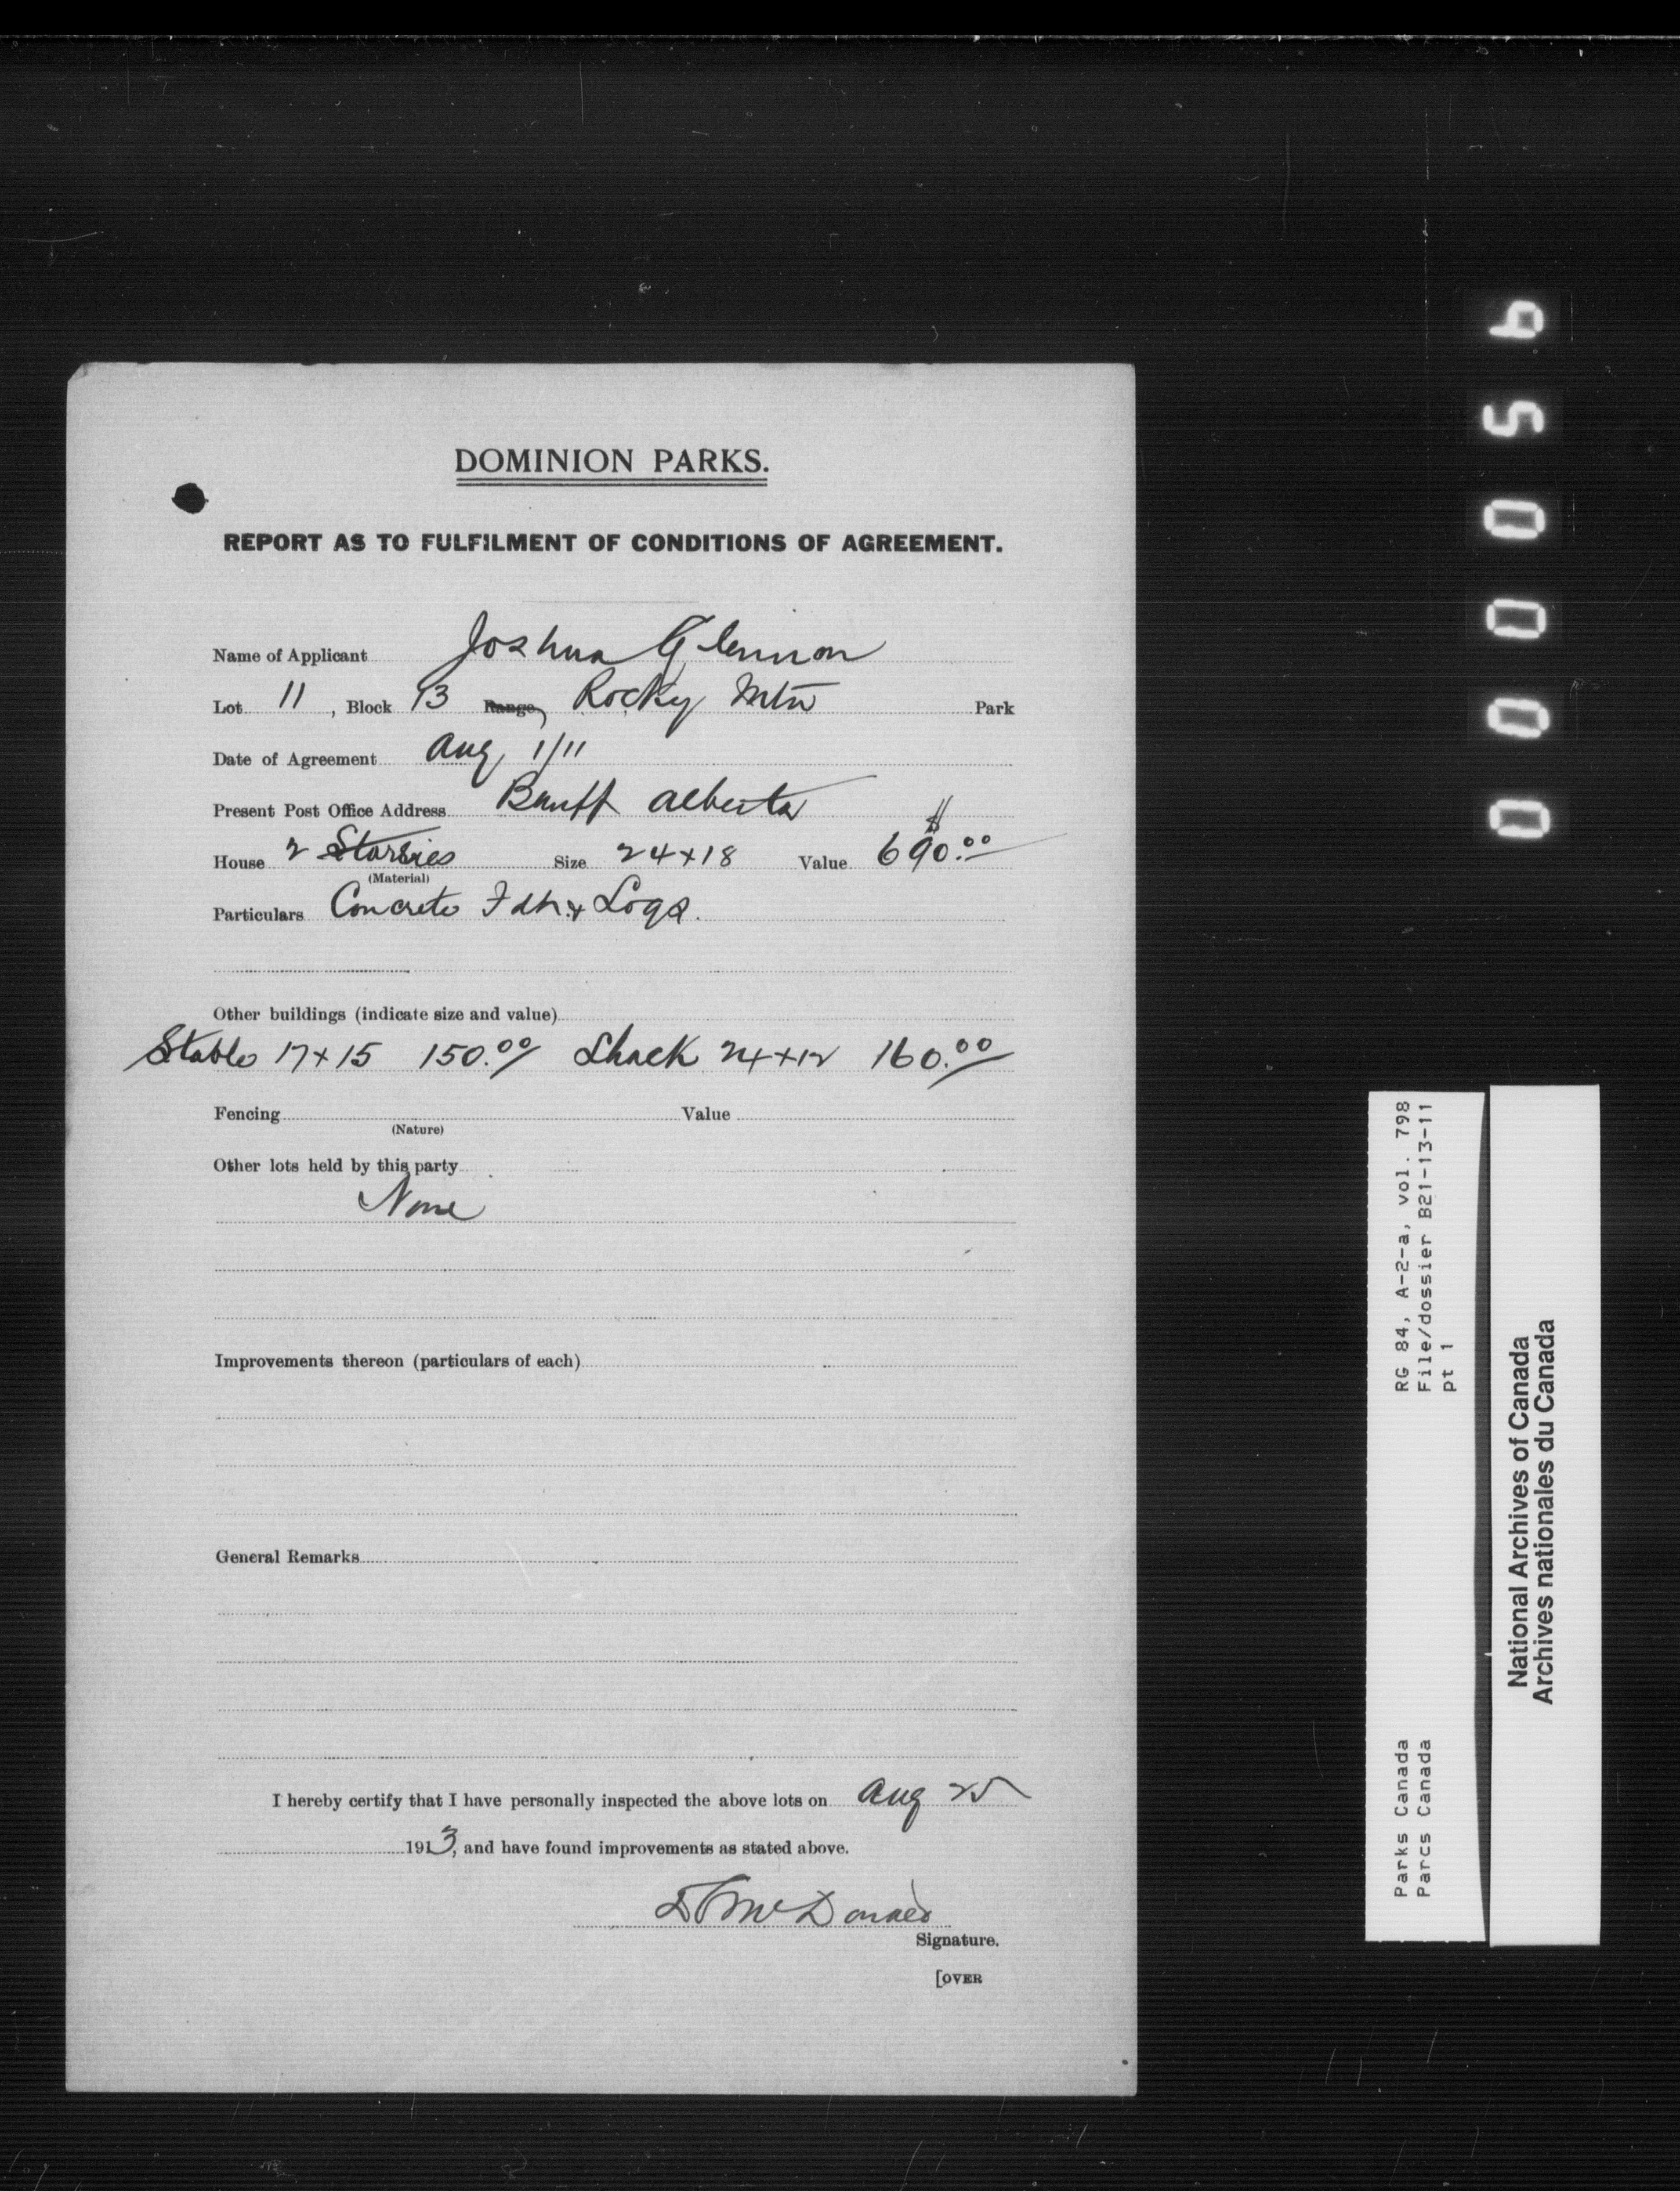 DOMINION PARKS.
REPORT AS TO FULFILMENT OF CONDITIONS OF AGREEMENT.
Name of Applicant Joshua Glennon
Lot 11, Block 13 Range, Rocky Mtn Park
Date of Agreement Aug 1/11
Present Post Office Address Banff Alberta
House 2 Storries Size 24 x 18 Value $690.00
(Material)
Particulars Concrete Fdn. & Logs.
Other buildings (indicate size and value)
Stable 17 x 15 150.00 Shack 24 x 12 160.00
Fencing Value
(Nature)
Other lots held by this party
None
Improvements thereon (particulars of each)
General Remarks
I hereby certify that I have personally inspected the above lots on Aug 25
1913, and have found improvements as stated above.
McDonald
Signature.
[OVER
000056
RG 84, A-2-a, vol. 798
File/dossier B21-13-11
pt 1
Parks Canada
Parcs Canada
National Archives of Canada
Archives nationales du Canada